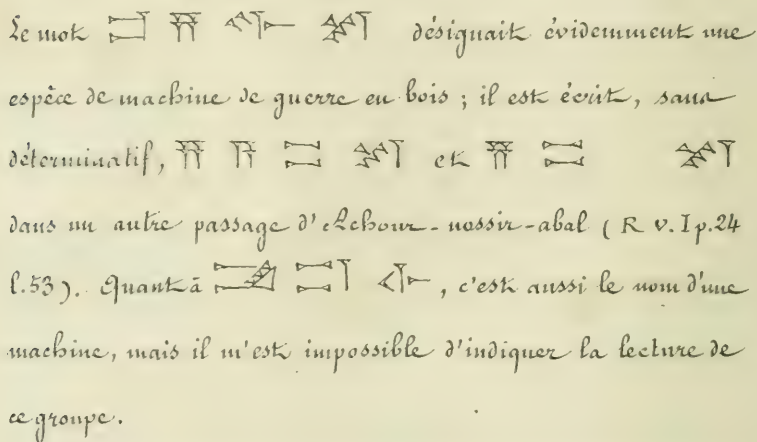 Le mot désignait évidemment une
espèce de machine de guerre en bois ; il est écrit, sans
déterminatif, et
dans un autre passage d'Achour-nassir-abal ( R v. I p. 24
l. 53 ). Quant à , c'est aussi le nom d'une
machine, mais il m'est impossible d'indiquer la lecture de
ce groupe.